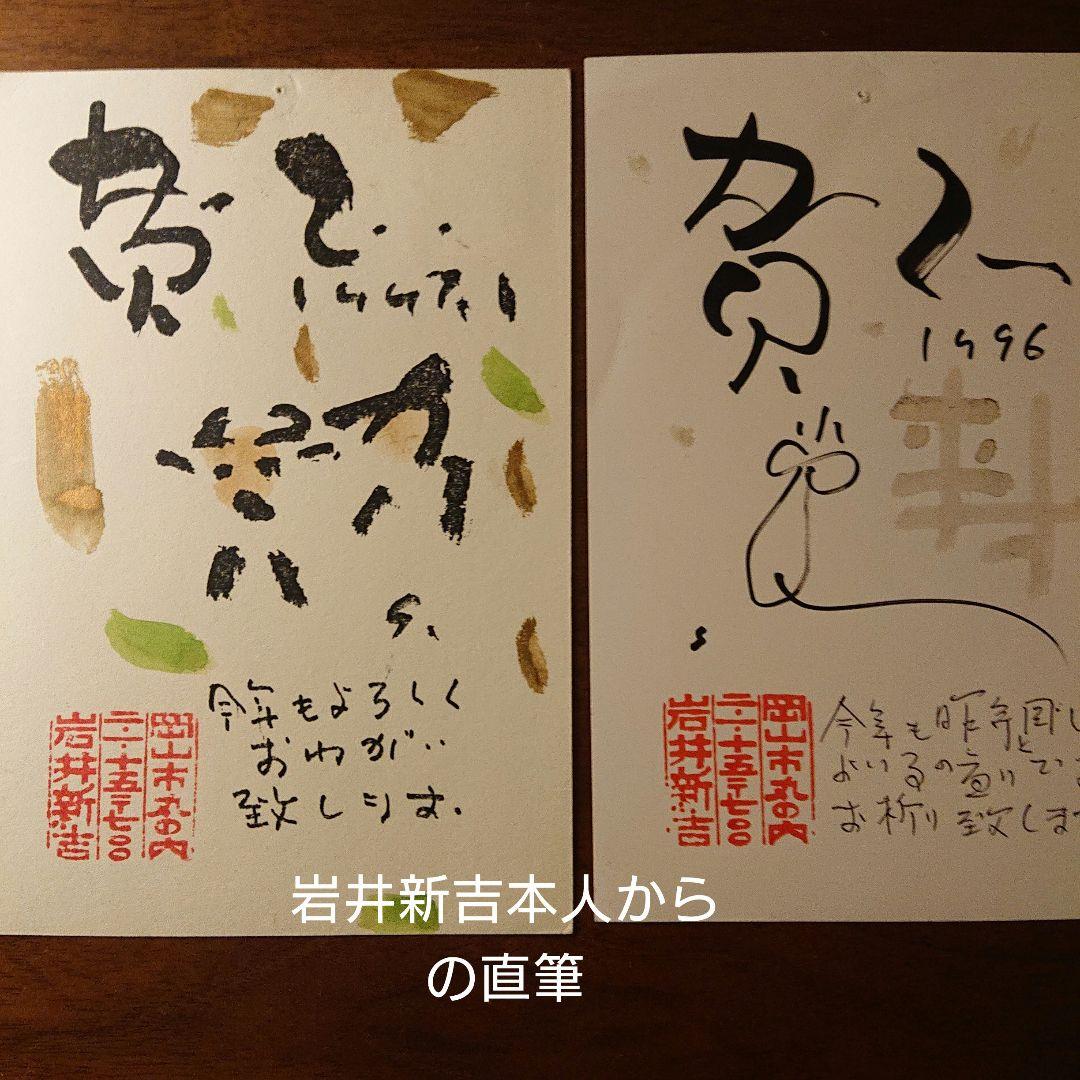 賀正
1997.1.1
S.
今年もよろしく
おねがい
致します。
岡山市丸の内
二・一・十五ー七〇〇
岩井新吉
賀正
1996
S
今年も昨年同
と
お祈り致しま
岡山市丸の内
二・一・十五ー七〇〇
岩井新吉
岩井新吉本人から
の直筆